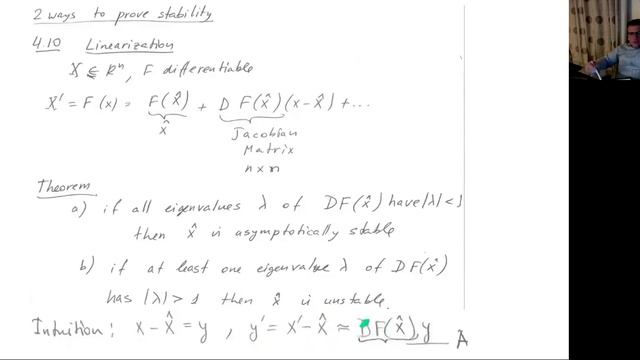 2 ways to prove stability
4.10 Linearization
X ⊆ ℝⁿ, F differentiable
x' = F(x) = F(x̂) + D F(x̂)(x-x̂) + ...
x̂ Jacobian
Matrix
n×n
Theorem
a) if all eigenvalues λ of DF(x̂) have |λ|<1
then x̂ is asymptotically stable
b) if at least one eigenvalue λ of DF(x̂)
has |λ|>1 then x̂ is unstable.
Intuition: x-x̂ = y, y' = x'-x̂ ≈ DF(x̂).y
A